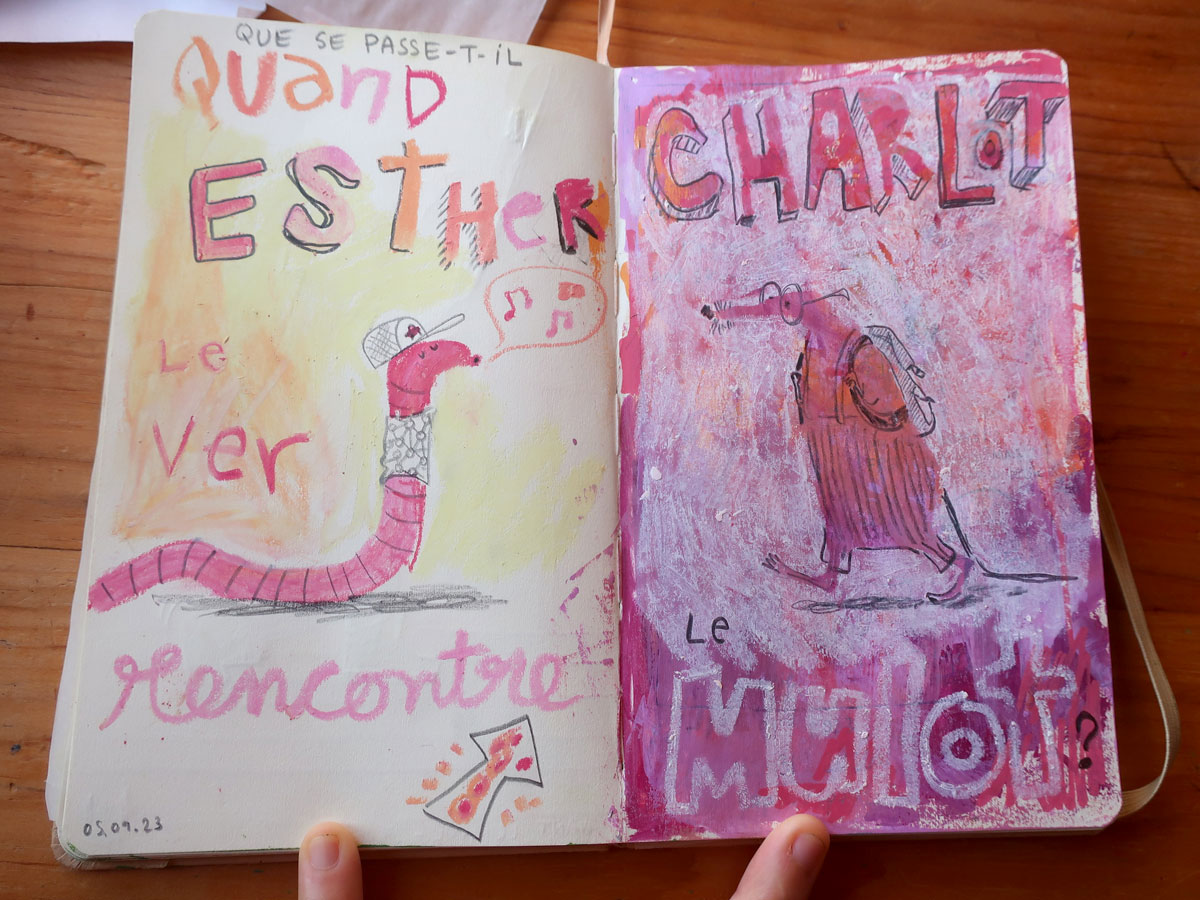 QUE SE PASSE-T-iL
QUanD
ESTHeR
Le
Ver
rencontre
05.09.23
CHARLOT
Le
MuLOT?